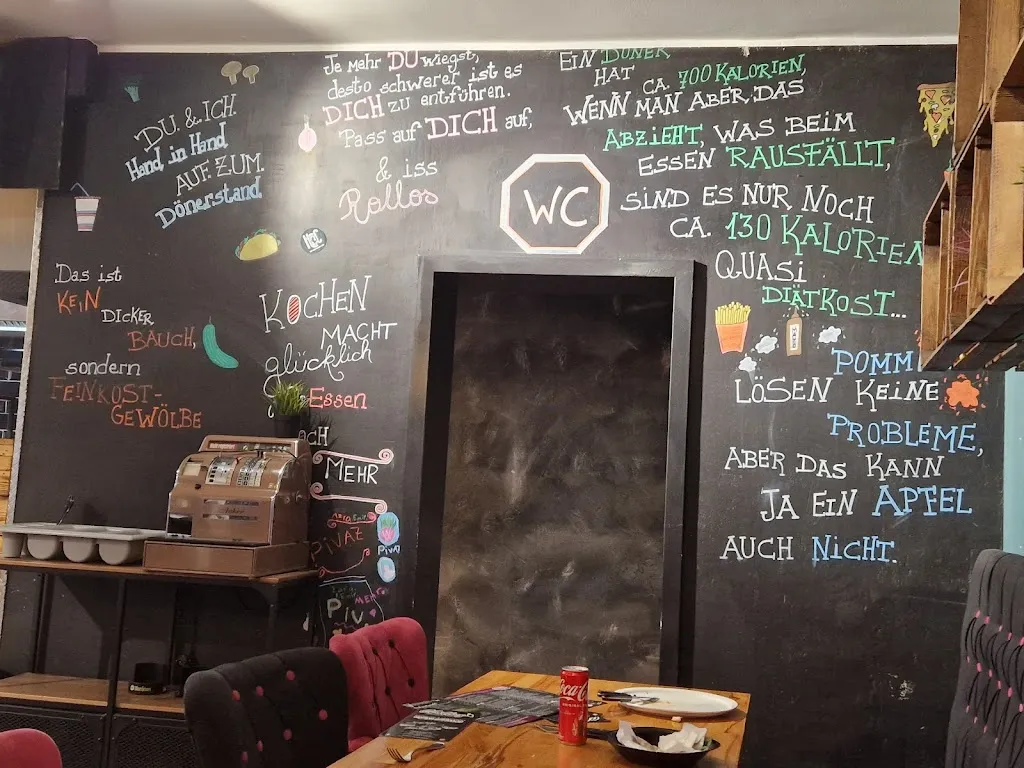 DU & ICH.
Hand in Hand
AUF ZUM
Dönerstand
Je mehr DU wiegst,
desto schwerer ist es
DICH zu entführen.
Pass auf DICH auf,
& iss
Rollos
EIN DÖNER
HAT CA. 700 KALORIEN,
WENN MAN ABER DAS
ABZIEHT, WAS BEIM
ESSEN RAUSFÄLLT,
SIND ES NUR NOCH
CA. 130 KALORIEN
QUASI
DIÄTKOST...
WC
Das ist
KEIN
DICKER
BAUCH,
sondern
FEINKOST-
GEWÖLBE
KOCHEN
MACHT
glücklich
Essen
MEHR
POMM
LÖSEN KEINE
PROBLEME,
ABER DAS KANN
JA EIN APFEL
AUCH NICHT.
PIVAT